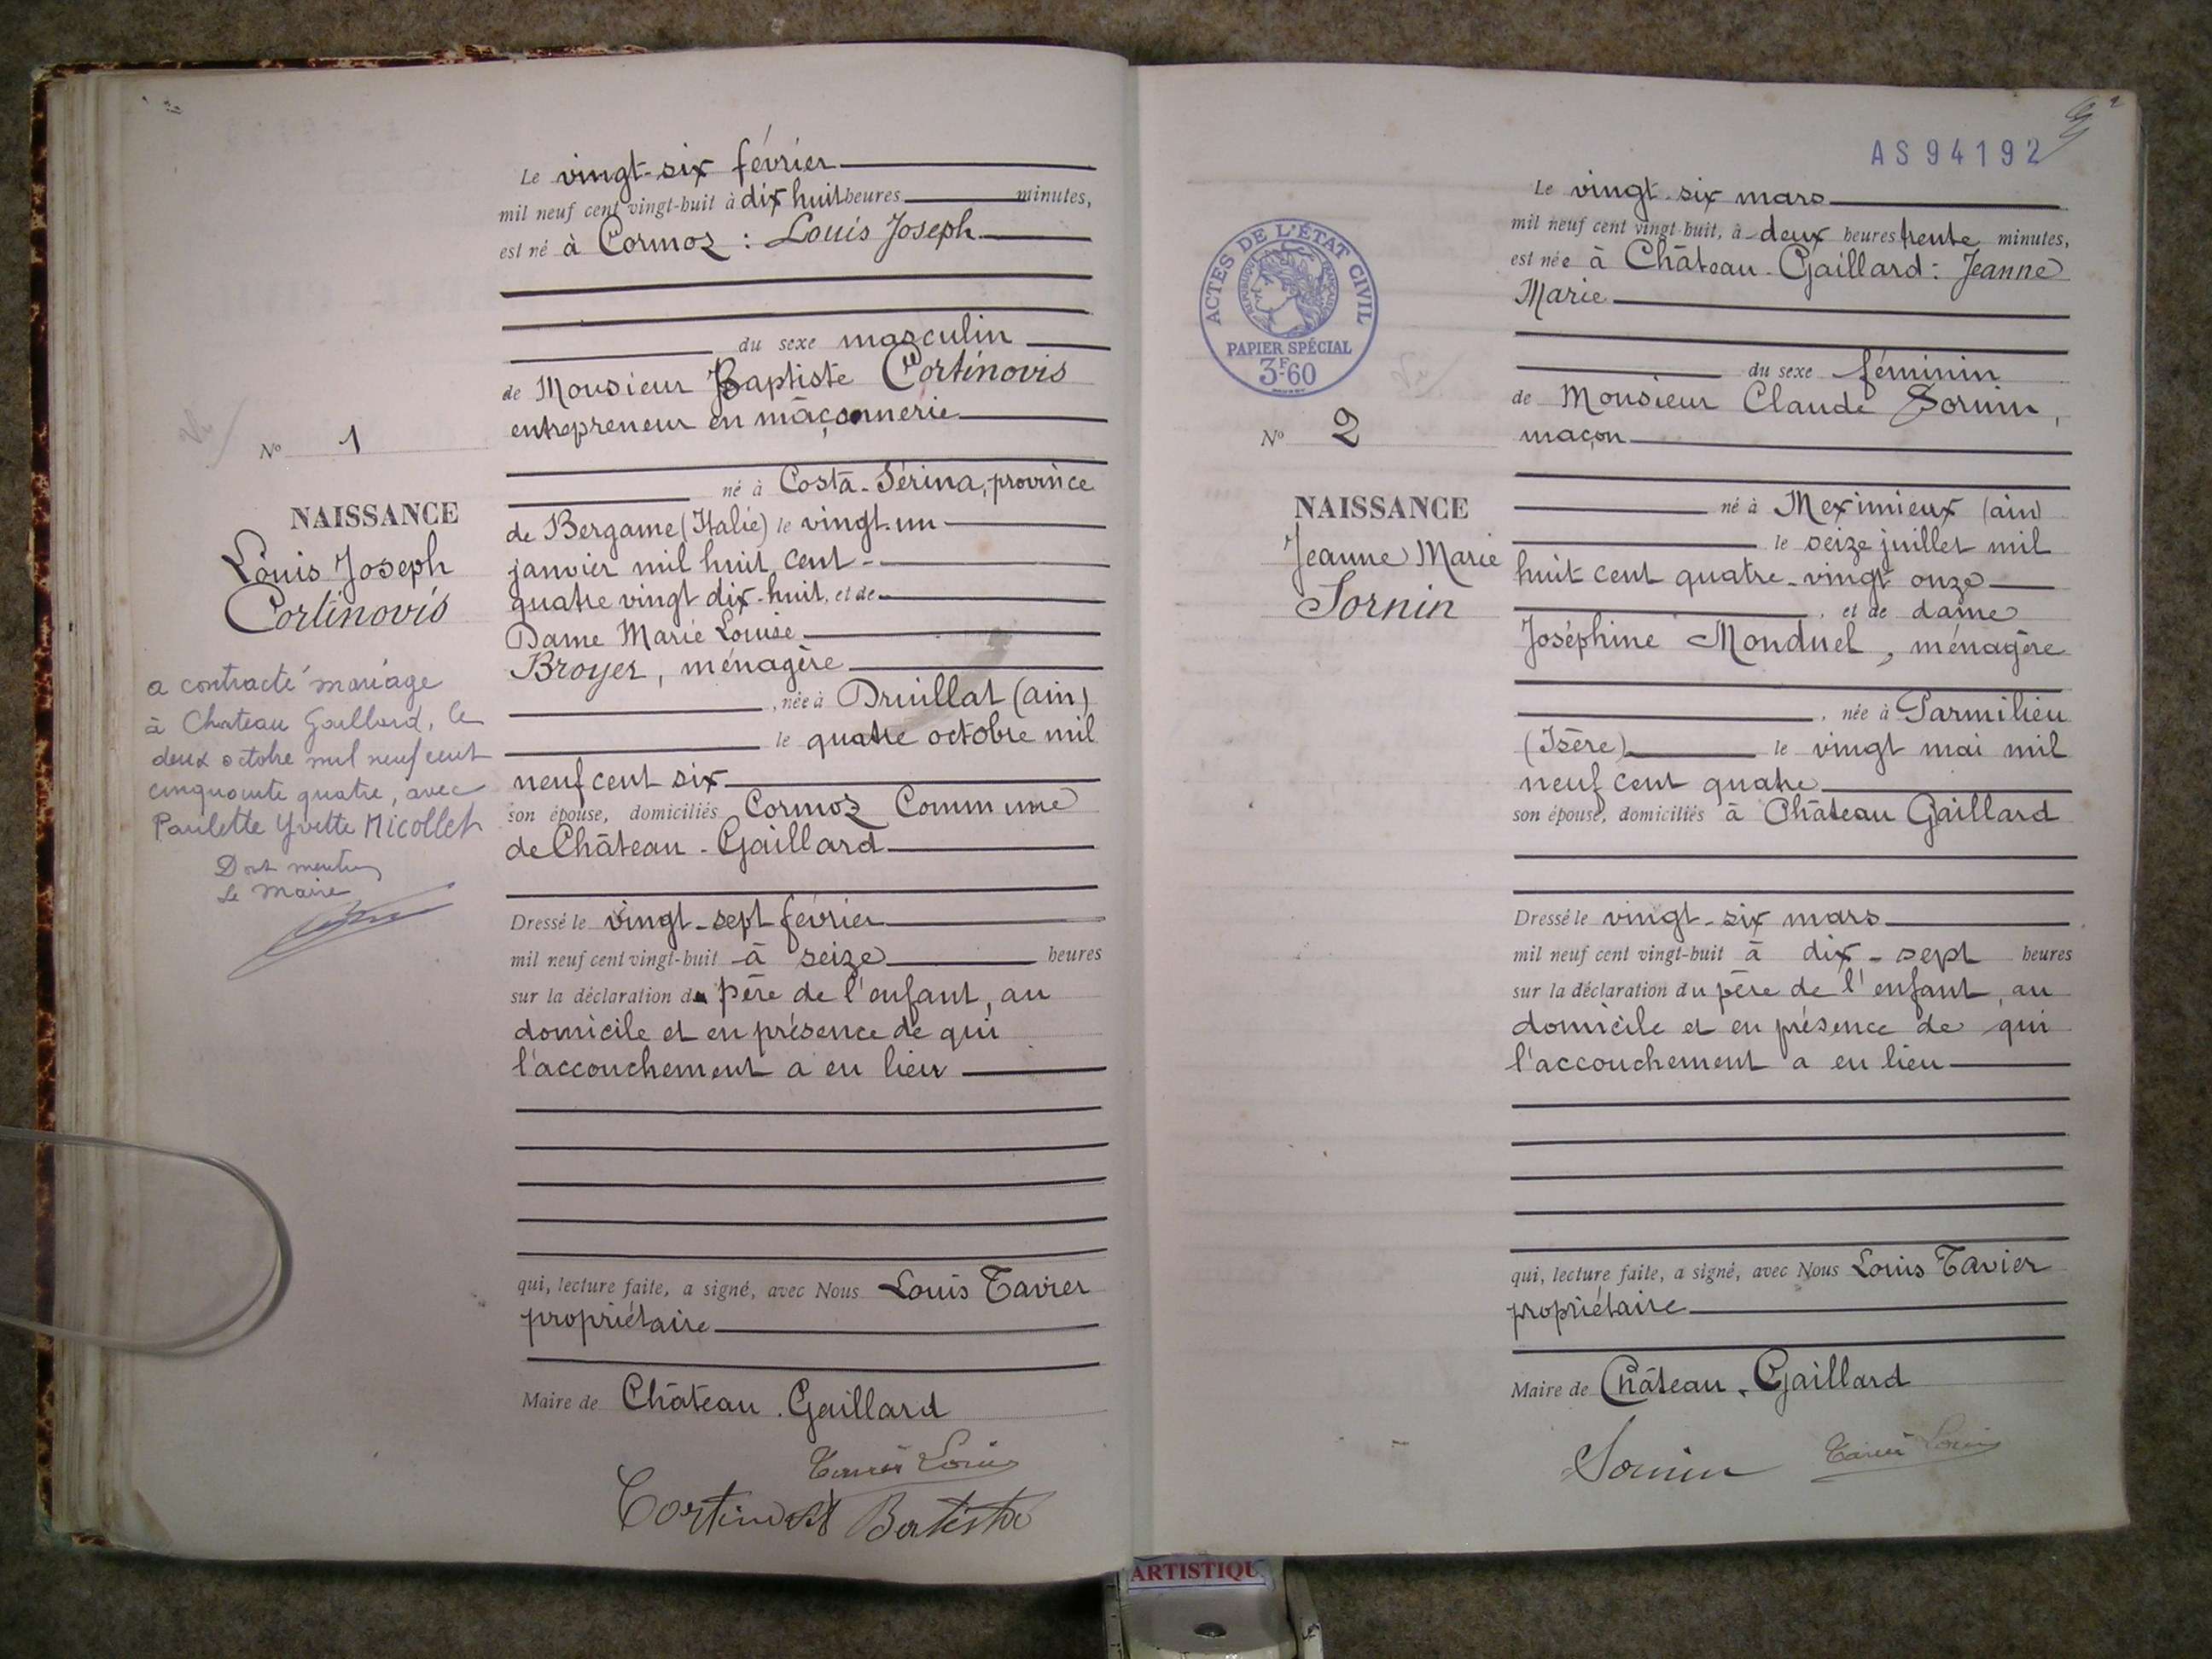 Le vingt-six février
mil neuf cent vingt-huit à dix huit heures minutes,
est né à Cormoz : Louis Joseph
du sexe masculin
de Monsieur Baptiste Cortinovis
entrepreneur en mâçonnerie
né à Costa-Sérina, province
de Bergame (Italie) le vingt-un
janvier mil huit cent-
quatre vingt dix-huit, et de
Dame Marie Louise
Broyer, ménagère
, née à Druillat (ain)
le quatre octobre mil
neuf cent six
son épouse, domiciliés Cormoz Commune
de Château-Gaillard
Dressé le vingt-sept février
mil neuf cent vingt-huit à seize heures
sur la déclaration du père de l'enfant, au
domicile et en présence de qui
l'accouchement a eu lieu
qui, lecture faite, a signé, avec Nous Louis Tavier
propriétaire
Maire de Château-Gaillard
Tavier Louis
Batista
No 1
NAISSANCE
Louis Joseph
Cortinovis
a contracté mariage
à Chateau Gaillard, le
deux octobre mil neuf cent
cinquante quatre, avec
Paulette Yvette Micollet
Dont mention
Le Maire
2
AS94192
Le vingt-six mars
mil neuf cent vingt-huit, à deux heures trente minutes,
est née à Château-Gaillard : Jeanne
Marie
du sexe féminin
de Monsieur Claude Sornin,
maçon
né à Meximieux (ain)
le seize juillet mil
huit cent quatre-vingt onze
, et de dame
Joséphine Monduel, ménagère
, née à Parmilieu
(Isère) le vingt mai mil
neuf cent quatre
son épouse, domiciliés à Château Gaillard
Dressé le vingt-six mars
mil neuf cent vingt-huit à dix-sept heures
sur la déclaration du père de l'enfant, au
domicile et en présence de qui
l'accouchement a eu lieu
qui, lecture faite, a signé, avec Nous Louis Tavier
propriétaire
Maire de Château-Gaillard
Sornin Tavier Louis
ACTES DE L'ÉTAT CIVIL
RÉPUBLIQUE FRANÇAISE
PAPIER SPÉCIAL
3F60
No 2
NAISSANCE
Jeanne Marie
Sornin
ARTISTIQU